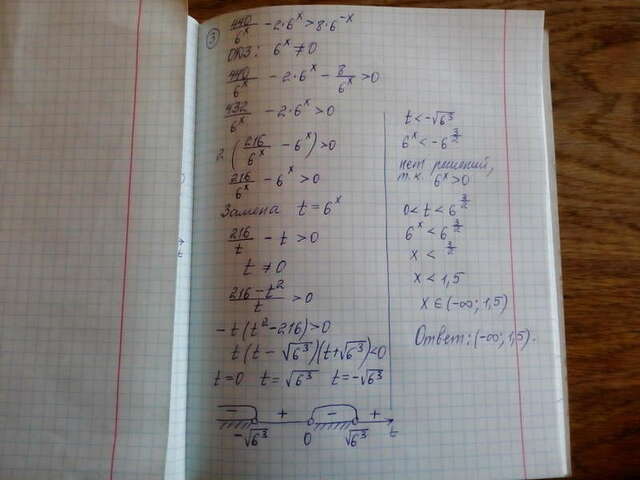 ③ 440/6^x − 2·6^x > 8·6^−x
ОДЗ: 6^x ≠ 0
440/6^x − 2·6^x − 8/6^x > 0
432/6^x − 2·6^x > 0
2·(216/6^x − 6^x) > 0
216/6^x − 6^x > 0
Замена t = 6^x
216/t − t > 0
t ≠ 0
(216 − t²)/t > 0
−t(t² − 216) > 0
t(t − √6³)(t + √6³) < 0
t = 0 t = √6³ t = −√6³
− + − +
−√6³ 0 √6³ t
t < −√6³
6^x < −6^(3/2)
нет решений,
т.к. 6^x > 0
0 < t < 6^(3/2)
6^x < 6^(3/2)
x < 3/2
x < 1,5
x ∈ (−∞; 1,5)
Ответ: (−∞; 1,5).